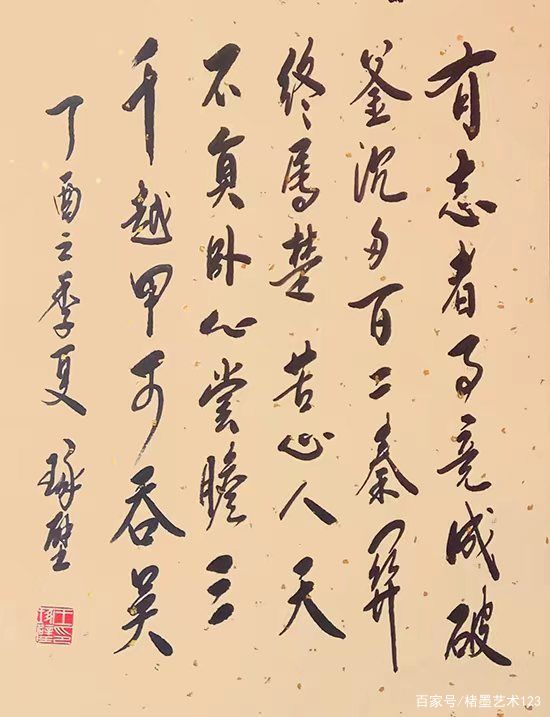 有志者事竟成破
釜沉舟百二秦關
終屬楚苦心人天
不負卧心嘗膽三
千越甲可吞吴
丁酉之季夏 琢璧
百家号/楮墨艺术123